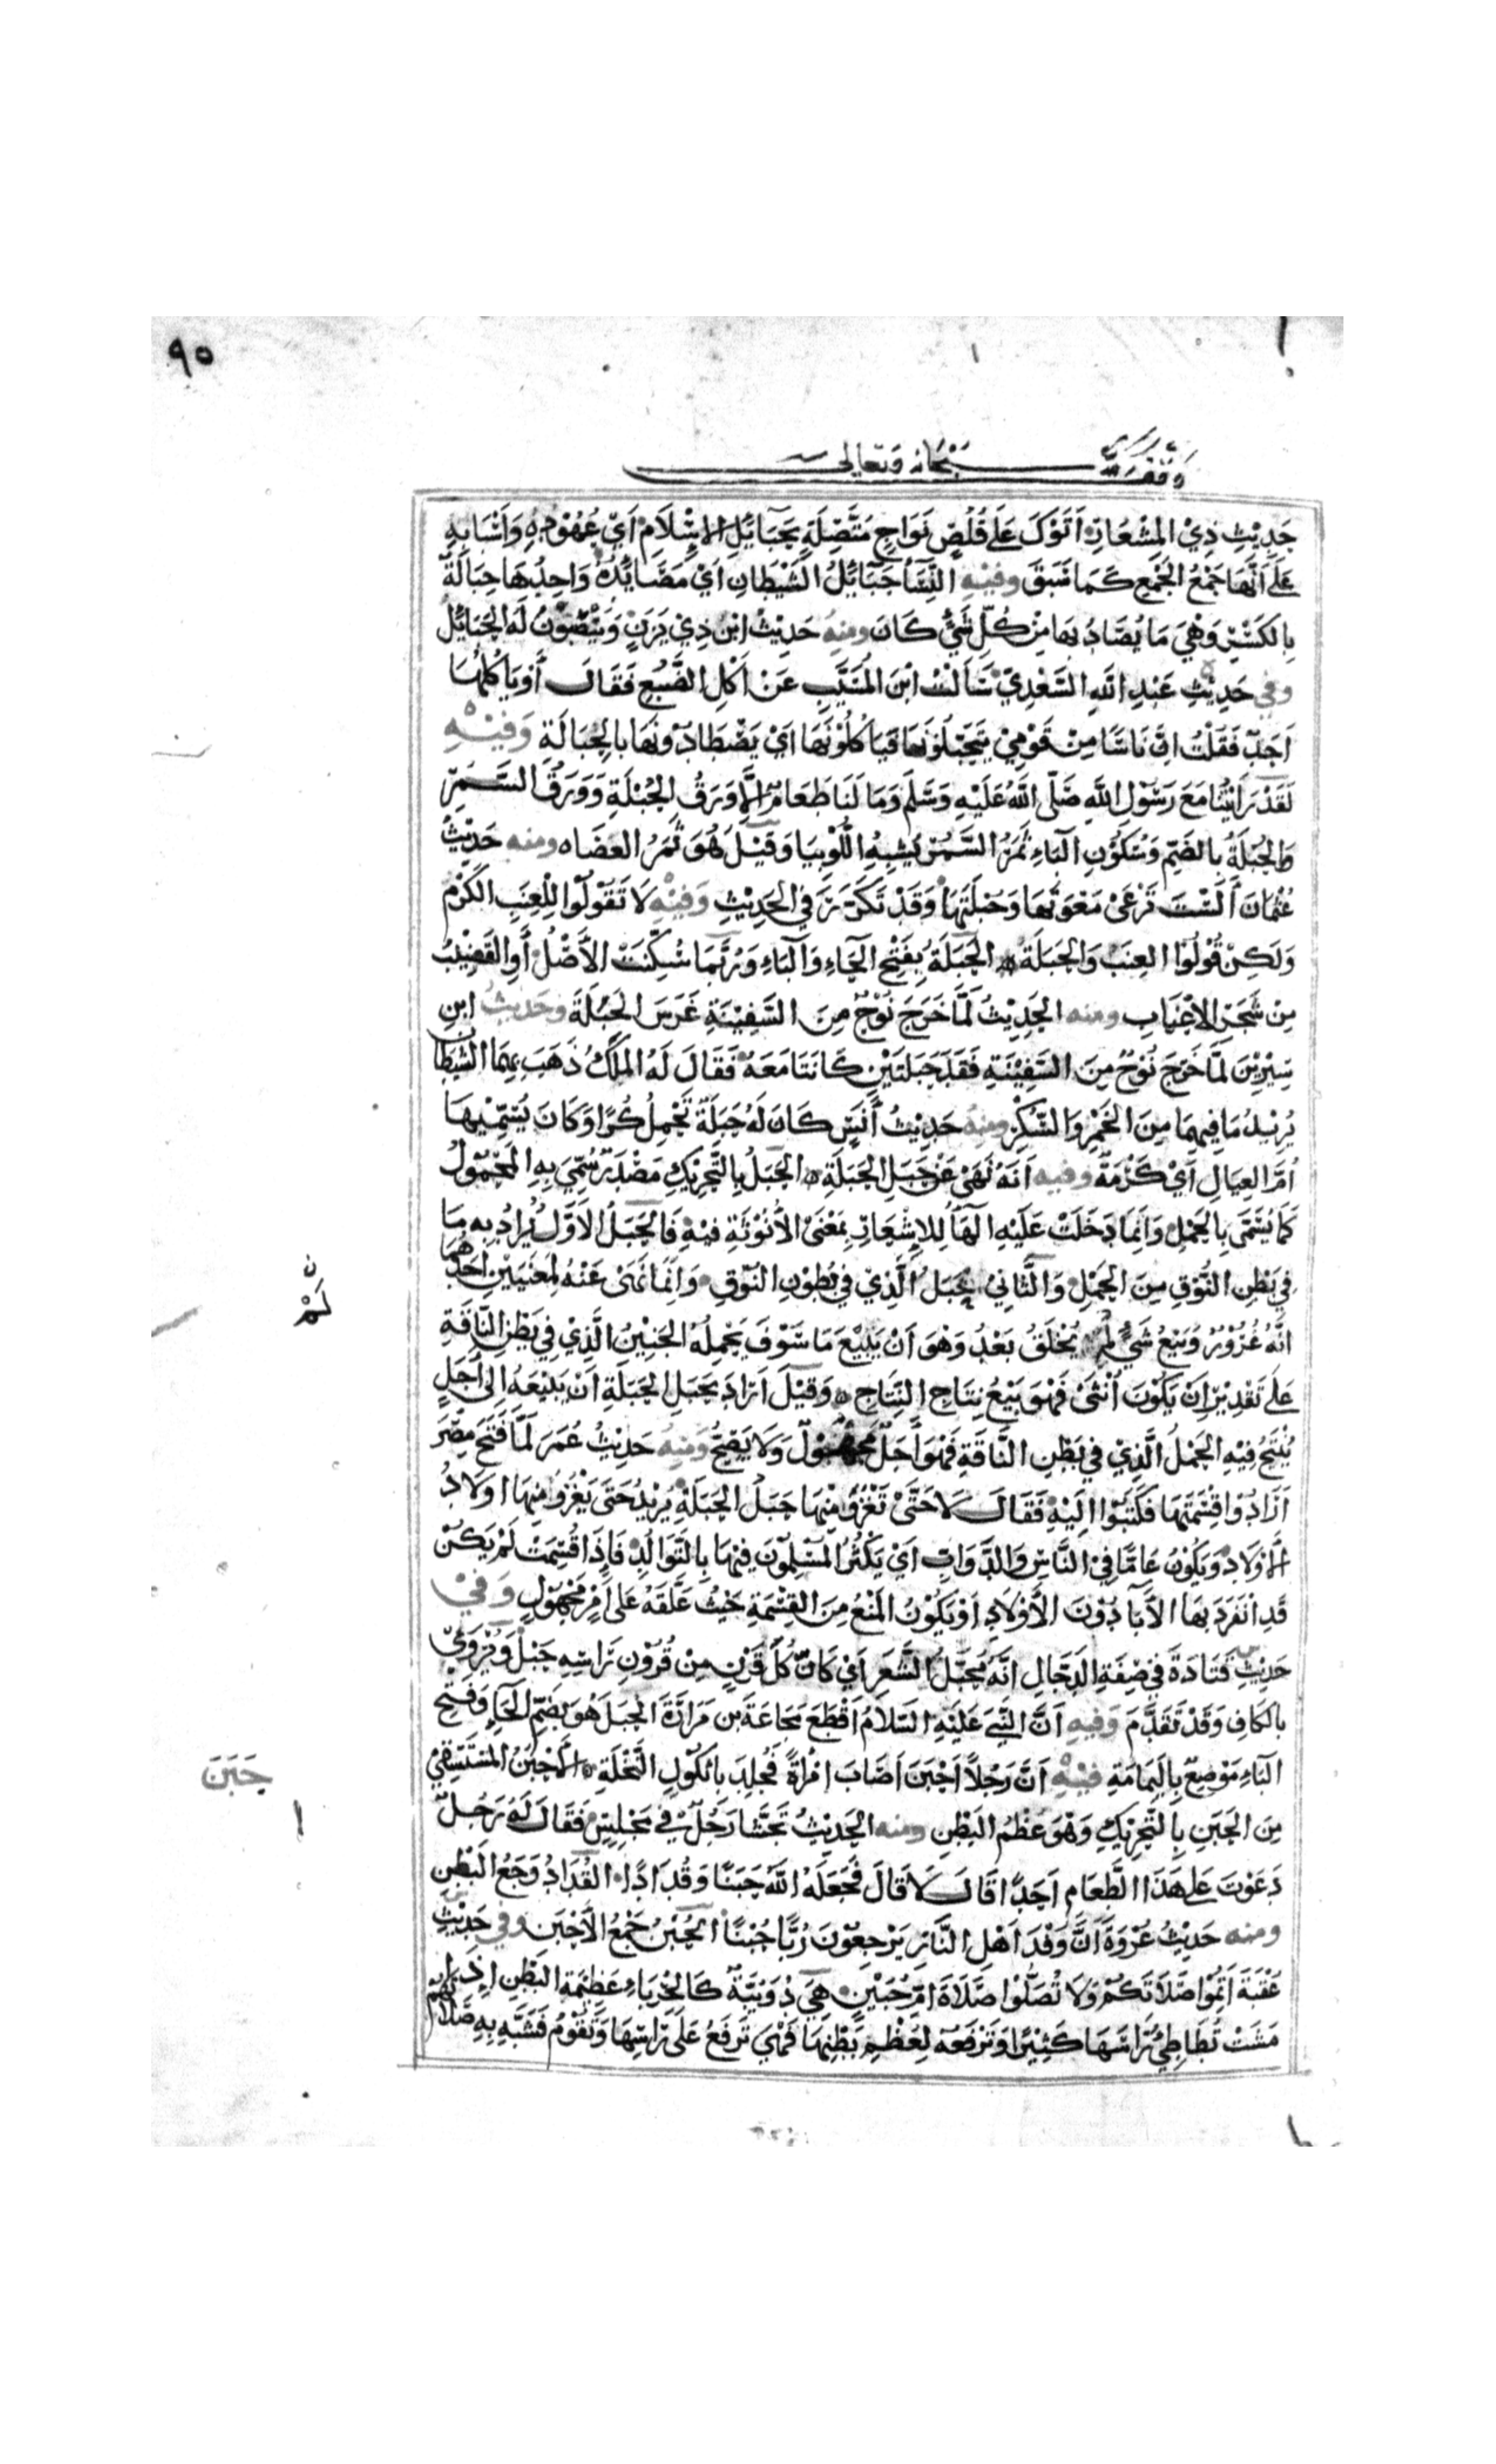 ٩٥
وقف لله سبحانه وتعالى
حَدِيْثِ ذِيْ المِشْعَارِ أَتَوْكَ عَلَى قُلُصٍ نَوَاجٍ مُتَّصِلَةٍ بِحَبَائِلِ الإِسْلَامِ أَيْ عُهُوْدِهِ وَأَسْبَابِهِ
عَلَى أَنَّهَا جَمْعُ الجَمْعِ كَمَا سَبَقَ وفيْهِ النِّسَاءُ حَبَائِلُ الشَّيْطَانِ أَيْ مَصَايِدُهُ وَاحِدُهَا حِبَالَةٌ
بِالكَسْرِ وَهِيَ مَا يُصَادُ بِهَا مِنْ كُلِّ شَيْءٍ كَانَ ومنهُ حَدِيْثُ ابْنِ ذِيْ يَزَنٍ وَيَنْصِبُوْنَ لَهُ الحَبَائِلَ
وفي حَدِيْثِ عَبْدِ اللهِ السَّعْدِيِّ سَأَلْتُ ابْنَ المُسَيَّبِ عَنْ أَكْلِ الضَّبُعِ فَقَالَ أَوَيَأْكُلُهَا
أَحَدٌ فَقُلْتُ إِنَّ نَاسًا مِنْ قَوْمِيْ يَتَحَبَّلُوْنَهَا فَيَأْكُلُوْنَهَا أَيْ يَصْطَادُوْنَهَا بِالحِبَالَةِ وَفيْهِ
لَقَدْ رَأَيْتُنَا مَعَ رَسُوْلِ اللهِ صَلَّى اللهُ عَلَيْهِ وَسَلَّمَ وَمَا لَنَا طَعَامٌ إِلَّا وَرَقُ الحُبْلَةِ وَوَرَقُ السَّمُرِ
وَالحُبْلَةُ بِالضَّمِّ وَسُكُوْنِ البَاءِ ثَمَرُ السَّمُرِ يُشْبِهُ اللُّوْبِيَا وَقِيْلَ هُوَ ثَمَرُ العَضَاه ومنه حَدِيْثُ
عُثْمَانَ أَلَسْتَ تَرْعَى مَعْوَتَهَا وَحُبْلَتَهَا وَقَدْ تَكَرَّرَ فِي الحَدِيْثِ وَفيْهِ لَا تَقُوْلُوْا لِلْعِنَبِ الكَرْمُ
وَلَكِنْ قُوْلُوْا العِنَبُ وَالحَبَلَةُ الحَبَلَةُ بِفَتْحِ الحَاءِ وَالبَاءِ وَرُبَّمَا سُكِّنَتْ الأَصْلُ أَوِ القَضِيْبُ
مِنْ شَجَرِ الأَعْنَابِ ومنه الحَدِيْثُ لَمَّا خَرَجَ نُوْحٌ مِنَ السَّفِيْنَةِ غَرَسَ الحَبَلَةَ وحَديثُ ابنِ
سِيْرِيْنَ لَمَّا خَرَجَ نُوْحٌ مِنَ السَّفِيْنَةِ فَقَدَ حَبَلَتَيْنِ كَانَتَا مَعَهُ فَقَالَ لَهُ المَلَكُ ذَهَبَ بِهِمَا الشَّيْطَانُ
يُرِيْدُ مَا فِيهِمَا مِنَ الخَمْرِ وَالسُّكْرِ ومنهُ حَدِيْثُ أَنَسٍ كَانَ لَهُ حَبَلَةٌ تَحْمِلُ كُرًّا وَكَانَ يُسَمِّيْهَا
أُمَّ العِيَالِ أَيْ كَرْمَةٌ وفيه أَنَّهُ نَهَى عَنْ حَبَلِ الحَبَلَةِ الحَبَلُ بِالتَّحْرِيْكِ مَصْدَرٌ سُمِّيَ بِهِ المَحْمُوْلُ
كَمَا يُسَمَّى بِالحَمْلِ وَإِنَّمَا دَخَلَتْ عَلَيْهِ الهَاءُ لِلإِشْعَارِ بِمَعْنَى الأُنُوْثَةِ فِيْهِ فَالحَبَلُ الأَوَّلُ يُرَادُ بِهِ مَا
فِيْ بَطْنِ النُّوْقِ مِنَ الحَمْلِ وَالثَّانِيْ حَبَلُ الَّذِيْ فِيْ بُطُوْنِ النُّوْقِ وَإِنَّمَا نَهَى عَنْهُ لِمَعْنَيَيْنِ أَحَدُهُمَا
أَنَّهُ غُرُوْرٌ وَبَيْعُ شَيْءٍ لَمْ يُخْلَقْ بَعْدُ وَهُوَ أَنْ يَبِيْعَ مَا سَوْفَ يَحْمِلُهُ الجَنِيْنُ الَّذِيْ فِيْ بَطْنِ النَّاقَةِ
عَلَى تَقْدِيْرِ أَنْ يَكُوْنَ أُنْثَى فَهُوَ بَيْعُ نِتَاجِ النِّتَاجِ وَقِيْلَ أَرَادَ بِحَبَلِ الحَبَلَةِ أَنْ يَبِيْعَهُ إِلَى أَجَلٍ
يُنْتَجُ فِيْهِ الحَمْلُ الَّذِيْ فِيْ بَطْنِ النَّاقَةِ فَهُوَ أَجَلٌ مَجْهُوْلٌ وَلَا يَصِحُّ وَمنهُ حَدِيْثُ عُمَرَ لَمَّا فُتِحَ مِصْرَ
أَرَادُوْا قِسْمَتَهَا فَكَتَبُوْا إِلَيْهِ فَقَالَ لَا حَتَّى تَغْزُوَ مِنْهَا حَبَلُ الحَبَلَةِ يُرِيْدُ حَتَى يَغْزُوَ مِنْهَا أَوْلَادُ
الأَوْلَادِ وَيَكُوْنُ عَامًّا فِيْ النَّاسِ وَالدَّوَابِّ أَيْ يَكْثُرُ المُسْلِمُوْنَ فِيْهَا بِالتَّوَالُدِ فَإِذَا قُسِمَتْ لَمْ يَكُنْ
قَدِ انْفَرَدَ بِهَا الآبَاءُ دُوْنَ الأَوْلَادِ أَوْ يَكُوْنُ المَنْعُ مِنَ القِسْمَةِ حَيْثُ عَلَّقَهُ عَلَى أَمْرٍ مَجْهُوْلٍ وَفِيْ
حَدِيْثِ قَتَادَةَ فِيْ صِفَةِ الدَّجَّالِ أَنَّهُ مُحَبَّلُ الشَّعَرِ أَيْ كَأَنَّ كُلَّ قَرْنٍ مِنْ قُرُوْنِ رَأْسِهِ حَبْلٌ وَيُرْوَى
بِالكَافِ وَقَدْ تَقَدَّمَ وَفيهِ أَنَّ النَّبِيَّ عَلَيْهِ السَّلَامُ أَقْطَعَ مَجَاعَةَ بن مَرَارَةَ الحُبَلَ هُوَ بِضَمِّ الحَاءِ وَفَتْحِ
البَاءِ مَوْضِعٌ بِاليَمَامَةِ فيْهِ أَنَّ رَجُلًا أَحْبَنَ أَصَابَ امْرَأَةً فَجُلِدَ بِأُثْكُوْلِ النَّخْلَةِ الأَحْبَنُ المُسْتَسْقِيْ
مِنَ الحَبَنِ بِالتَّحْرِيْكِ وَهُوَ عَظْمُ البَطْنِ ومنه الحَدِيْثُ تَجَشَّأَ رَجُلٌ فِيْ مَجْلِسٍ فَقَالَ لَهُ رَجُلٌ
دَعَوْتَ عَلَى هَذَا الطَّعَامِ أَحَدًا قَالَ لَا قَالَ فَجَعَلَهُ اللهُ حَبَنًا وَقُدَادًا القُدَادُ وَجَعُ البَطْنِ
ومنه حَدِيْثُ عُرْوَةَ أَنَّ وَفْدَ أَهْلِ النَّارِ يَرْجِعُوْنَ زُبًّا حُبْنًا الحُبْنُ جَمْعُ الأَحْبَنِ وفي حَدِيْثِ
عُقْبَةَ أَتِمُّوْا صَلَاتَكُمْ وَلَا تُصَلُّوْا صَلَاةَ أُمِّ حُبَيْنٍ هِيَ دُوَيْبَةٌ كَالحِرْبَاءِ عَظِيْمَةُ البَطْنِ إِذَا
مَشَتْ تُطَاطِئُ رَأْسَهَا كَثِيْرًا وَتَرْفَعُهُ لِعُظْمِ بَطْنِهَا فَهِيَ تَرْفَعُ عَلَى رَأْسِهَا وَتَقُوْمُ فَشَبَّهَ بِهِ صَلَاتَهُمْ
ن
لَمْ
حَبَنَ